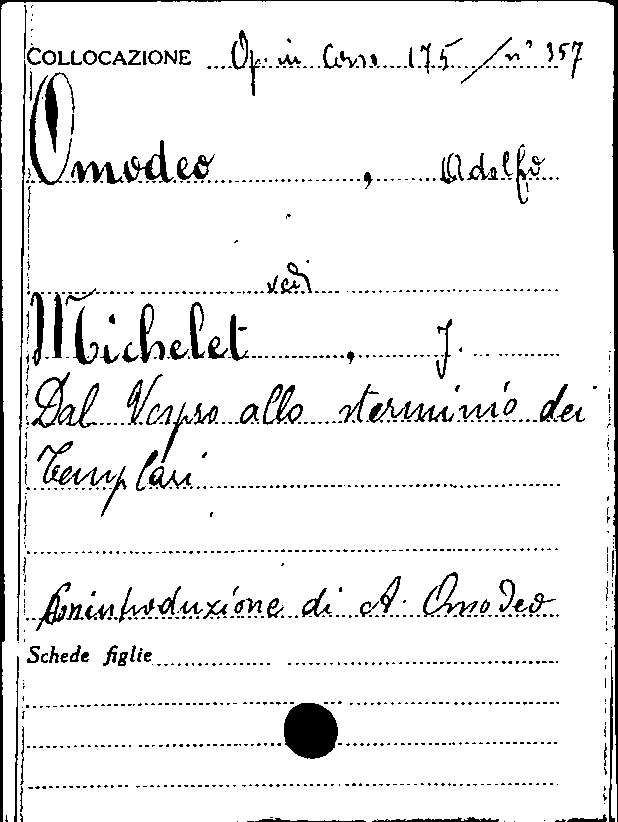 COLLOCAZIONE Op. in Corso 175 / n° 357
Omodeo, Adolfo
vedi
Michelet, J.
Dal Vespro allo sterminio dei
Templari
Con introduzione di A. Omodeo
Schede figlie